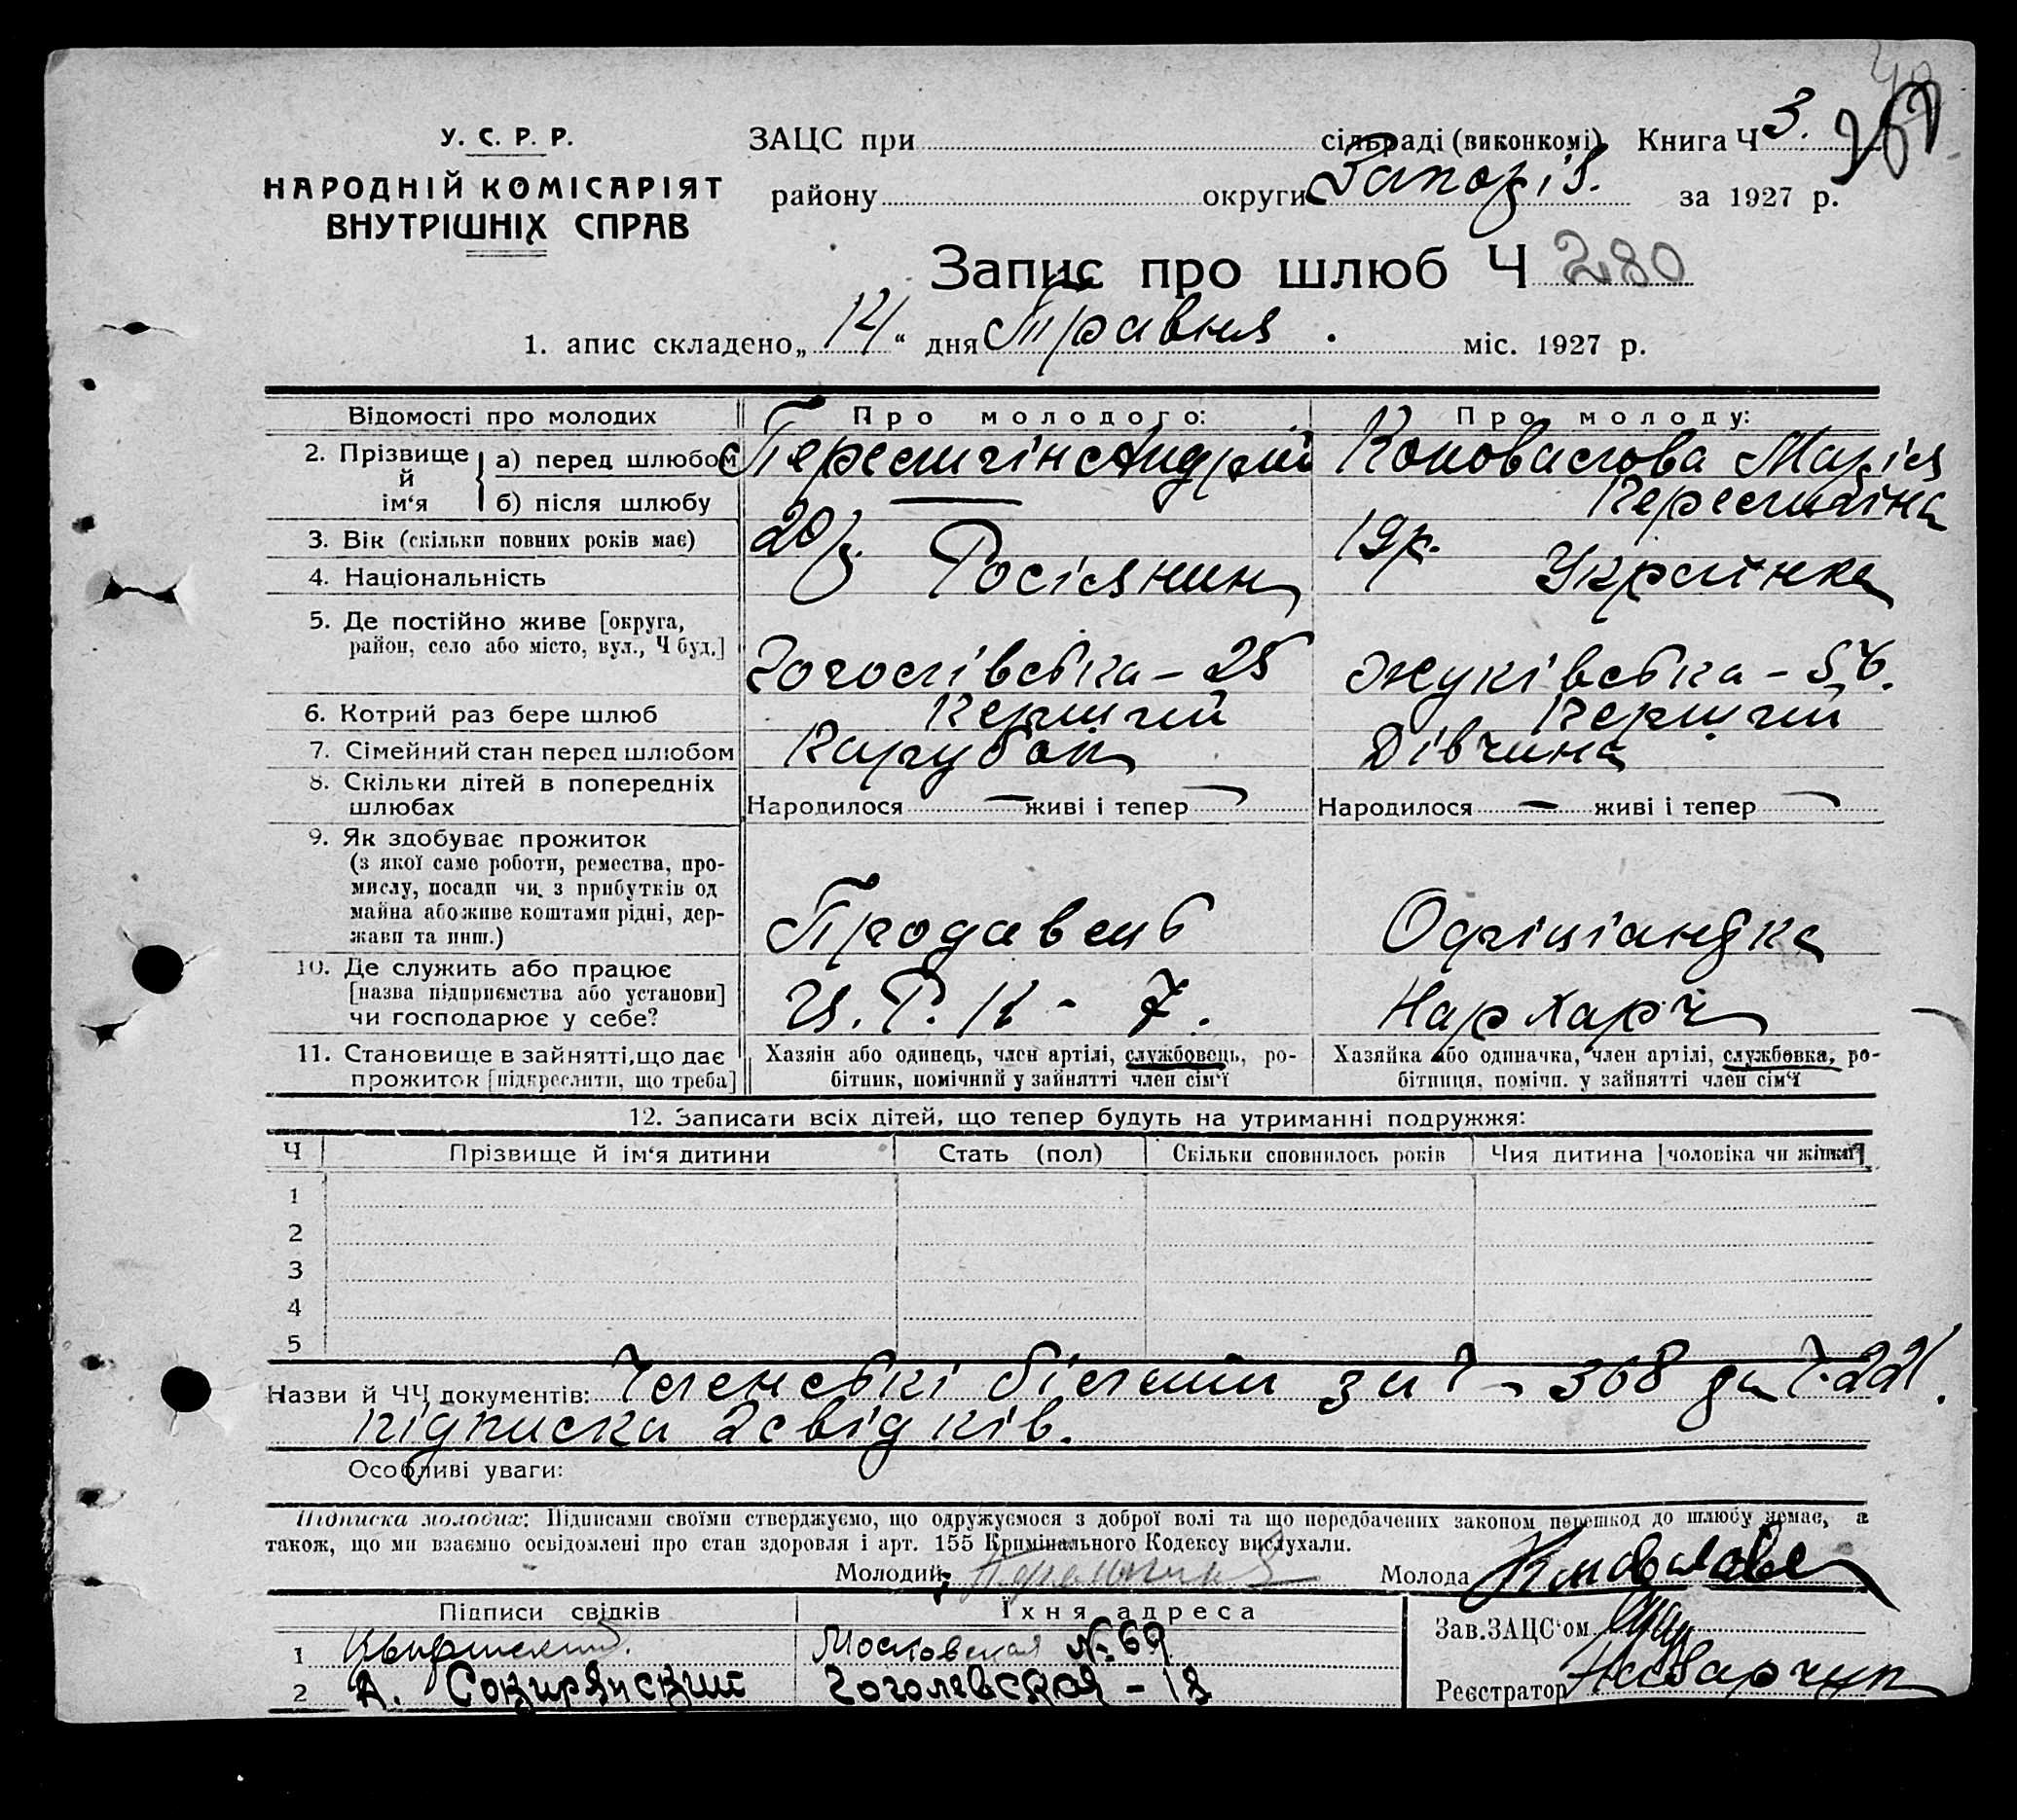 У. С. Р. Р.
НАРОДНІЙ КОМІСАРІЯТ
ВНУТРІШНІХ СПРАВ
ЗАЦС при сільраді (виконкомі) Книга Ч 3.
району округи Запоріз. за 1927 р.
Запис про шлюб Ч 280
1. апис складено „14“ дня Травня міс. 1927 р.
Відомості про молодих Про молодого: Про молоду:
2. Прізвище й ім‘я
а) перед шлюбом Андрій Коновалова Марія
б) після шлюбу —
3. Вік (скільки повних років має) 20 р. 19 р.
4. Національність Росіянин Українка
5. Де постійно живе [округа, район, село або місто, вул., Ч буд.] Гоголівська – 25 Жуківська –
6. Котрий раз бере шлюб Перший Перший
7. Сімейний стан перед шлюбом Парубок Дівчина
8. Скільки дітей в попередніх шлюбах Народилося — живі і тепер — Народилося — живі і тепер —
9. Як здобуває прожиток
(з якої само роботи, ремества, промислу, посади чи з прибутків од майна або живе коштами рідні, держави та инш.) Продавець Офіціандка
10. Де служить або працює [назва підприємства або установи] чи господарює у себе? Ц.Р.К - 7. Нархарч
11. Становище в зайнятті, що дає прожиток [підкреслити, що треба] Хазяін або одинець, член артілі, службовець, робітник, помічний у зайнятті член сім‘ї Хазяйка або одиначка, член артілі, службовка, робітниця, помічн. у зайнятті член сім‘ї
12. Записати всіх дітей, що тепер будуть на утриманні подружжя:
Ч Прізвище й ім‘я дитини Стать (пол) Скільки сповнилось років Чия дитина [чоловіка чи жінки]
1
2
3
4
5
Назви й ЧЧ документів: Членські білети за Ч - 368 да Ч. 221.
підписка 2 свідків.
Особливі уваги:
Підписка молодих: Підписами своїми стверджуємо, що одружуємося з доброї волі та що передбачених законом перешкод до шлюбу немає, а
також, що ми взаємно освідомлені про стан здоровля і арт. 155 Кримінального Кодексу вислухали.
Молодий Молода Коновалова
Підписи свідків Їхня адреса Зав. ЗАЦС‘ом
1 Московская № 69
2 А. Сокирянский Гоголевская – 18 Реєстратор